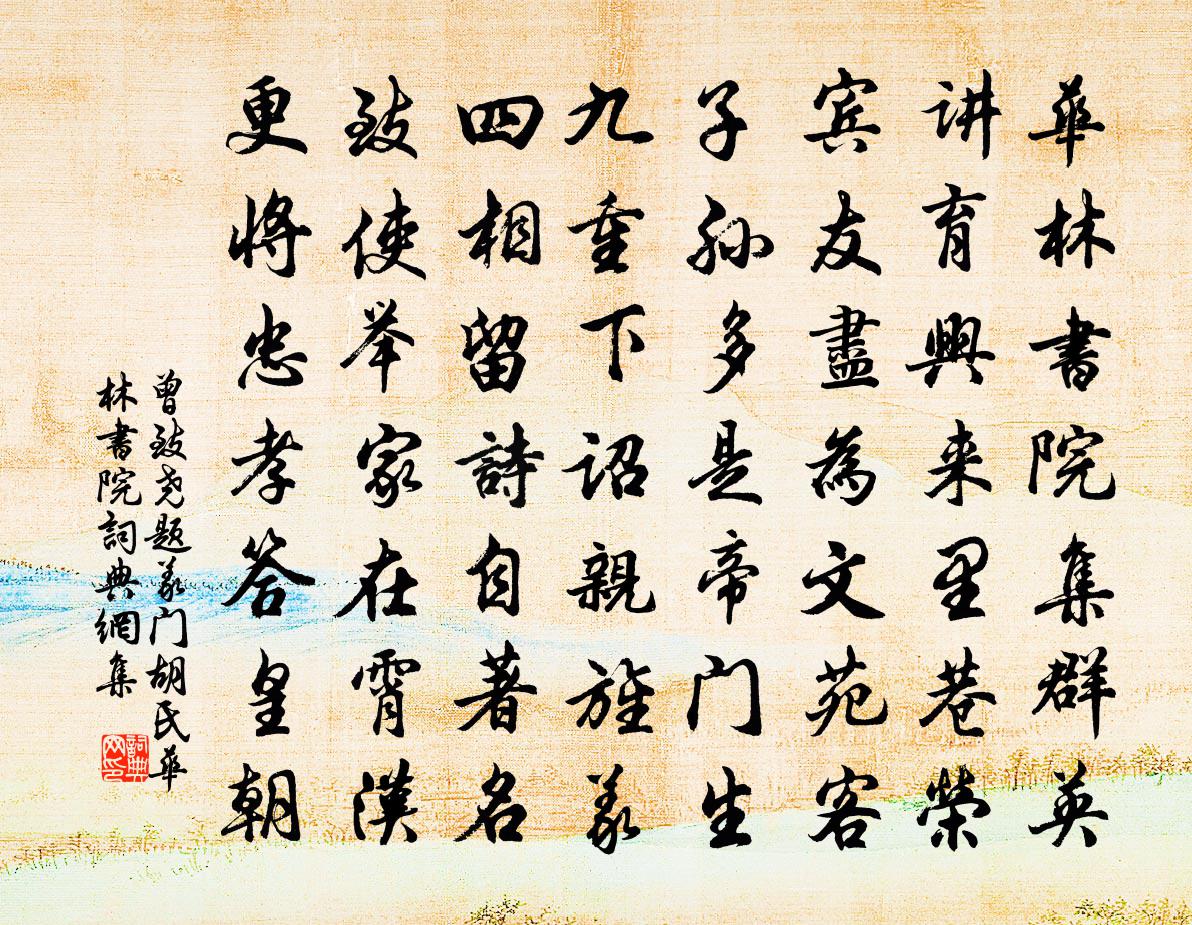 華林書院集群英
讲育興来里巷榮
宾友盡為文苑客
子孙多是帝门生
九重下诏親旌義
四相留詩自著名
致使举家在霄漢
更将忠孝答皇朝
曾致尧题義门胡氏華
林書院詞典網集
詞典网印